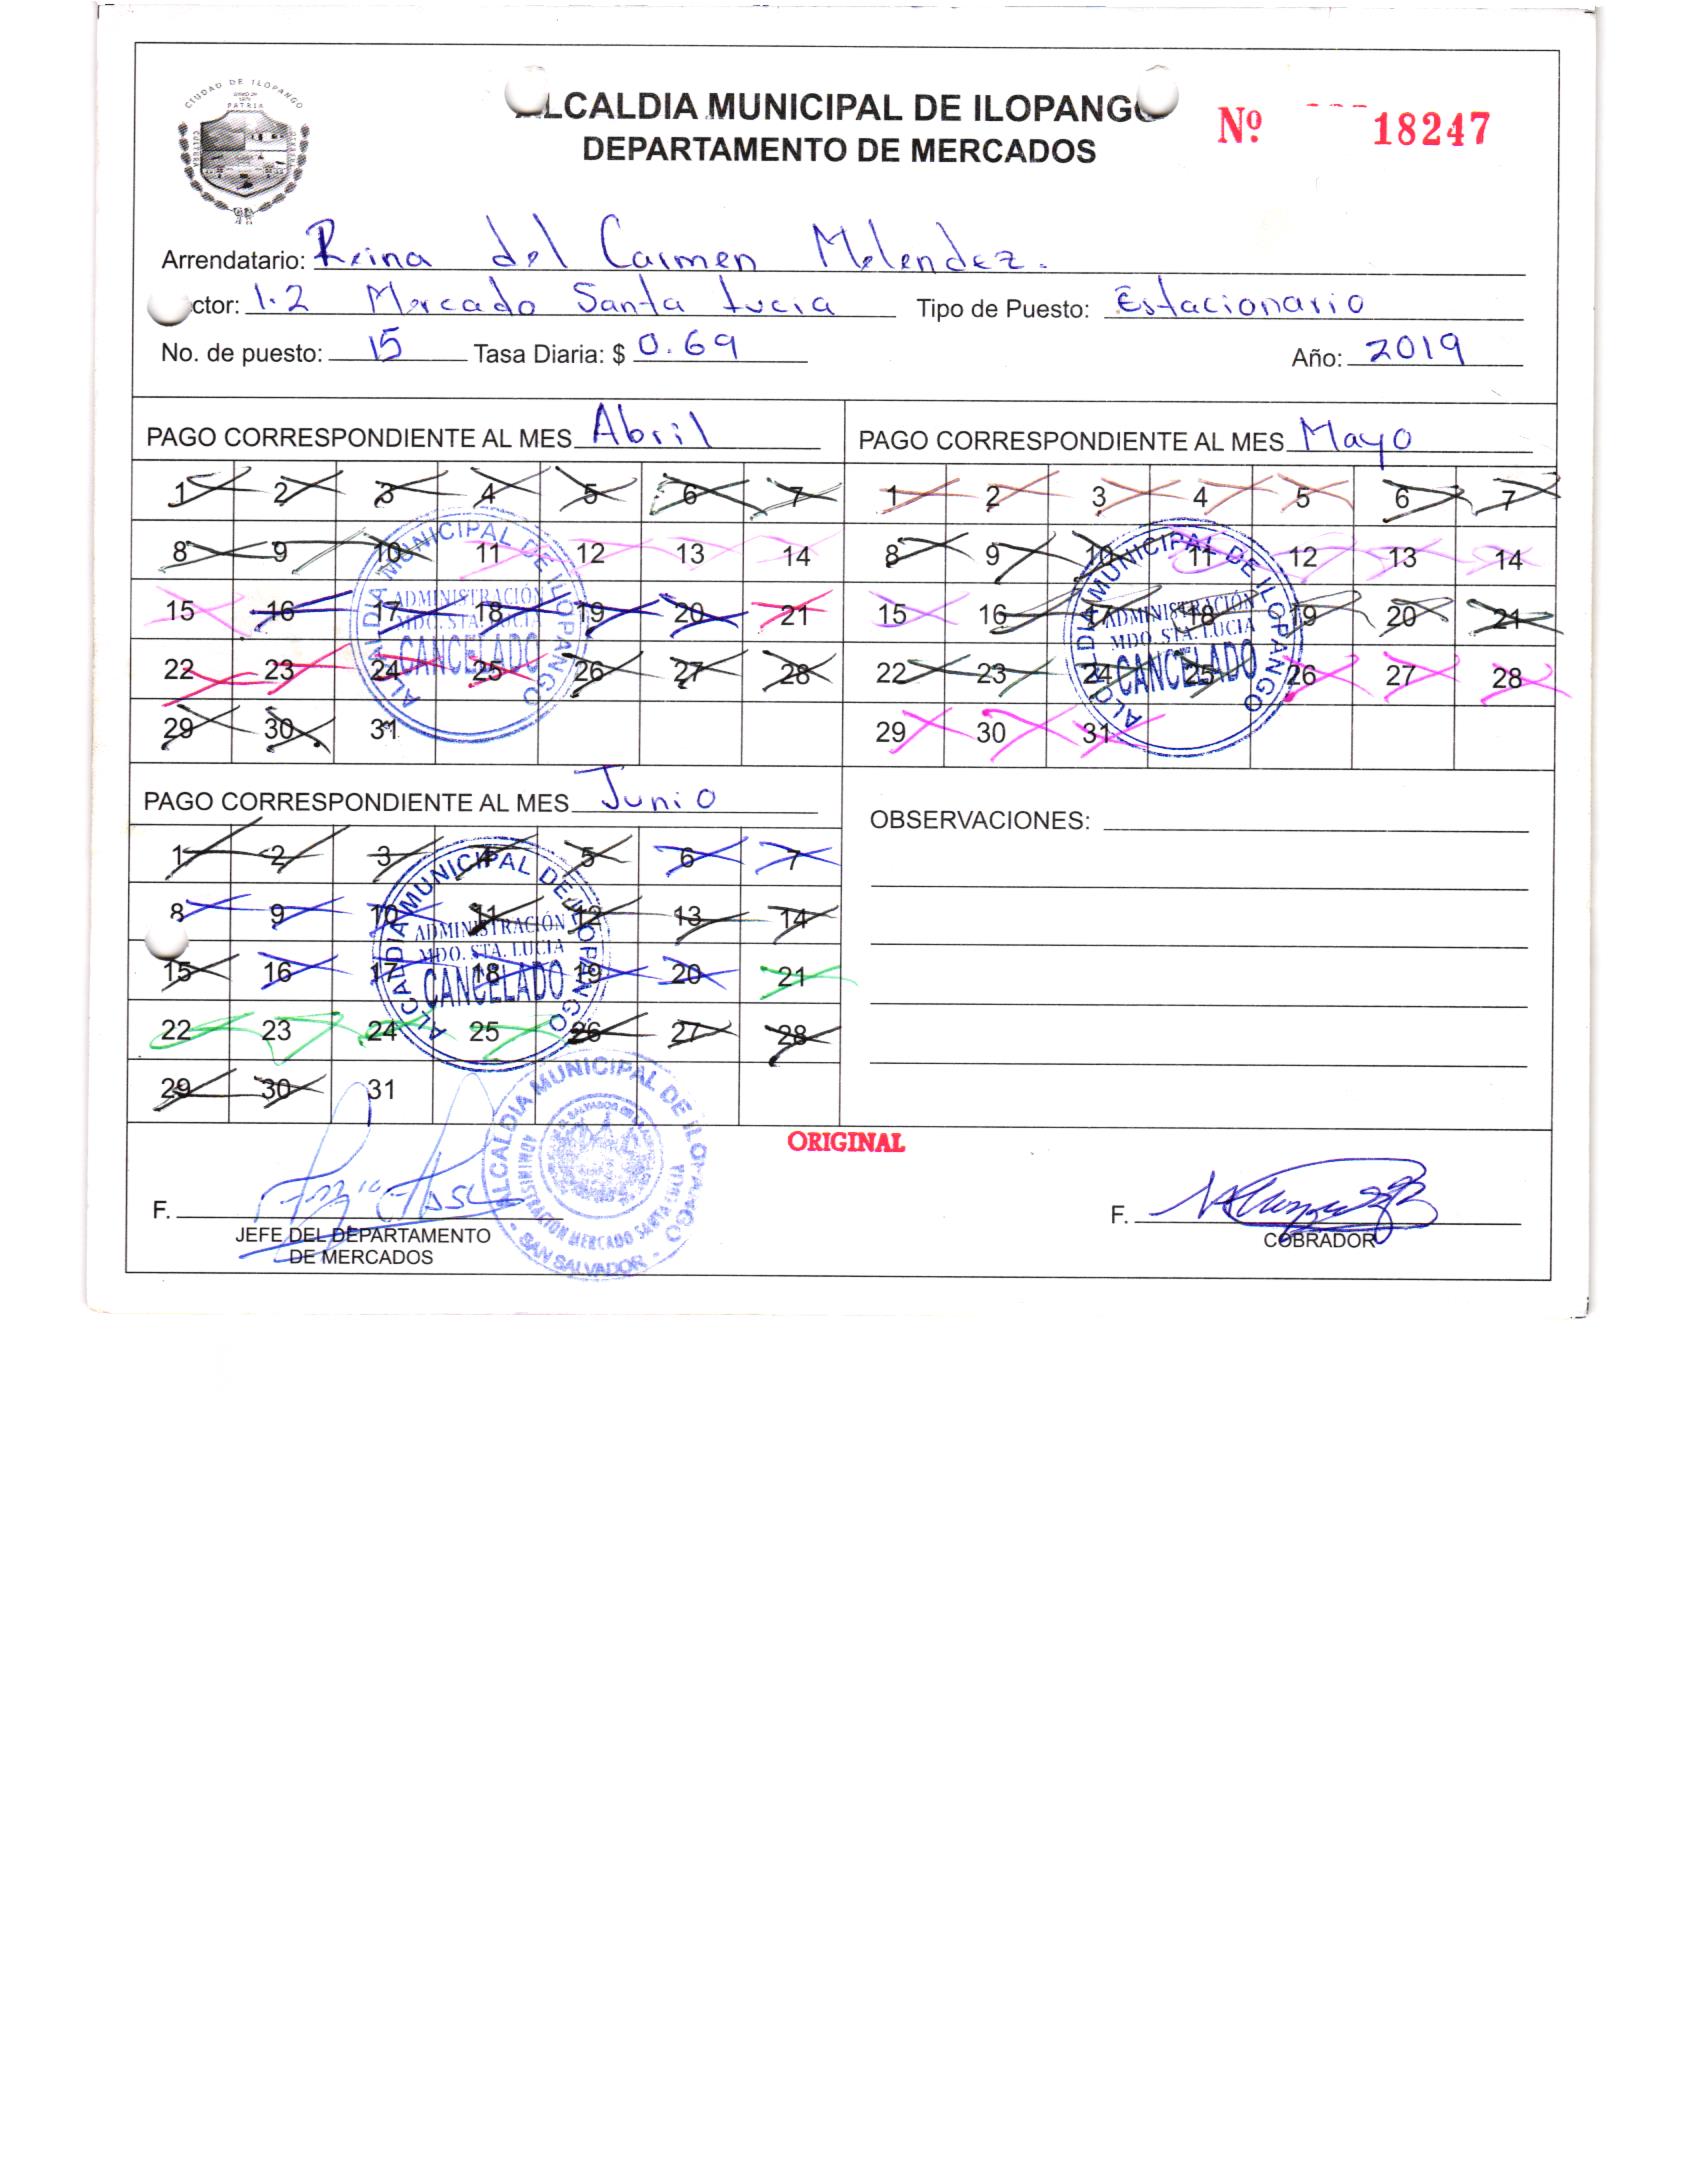 CIUDAD DE ILOPANGO
PATRIA
CULTURA
LCALDIA MUNICIPAL DE ILOPANGO
DEPARTAMENTO DE MERCADOS
Nº 18247
Arrendatario: Reina del Carmen Melendez.
ctor: 1.2 Mercado Santa Lucia Tipo de Puesto: Estacionario
No. de puesto: 15 Tasa Diaria: $ 0.69 Año: 2019
PAGO CORRESPONDIENTE AL MES Abril
1 2 3 4 5 6 7
8 9 10 11 12 13 14
15 16 17 18 19 20 21
22 23 24 25 26 27 28
29 30 31
ALCALDIA MUNICIPAL DE ILOPANGO
ADMINISTRACIÓN
MDO. STA. LUCIA
CANCELADO
PAGO CORRESPONDIENTE AL MES Mayo
1 2 3 4 5 6 7
8 9 10 11 12 13 14
15 16 17 18 19 20 21
22 23 24 25 26 27 28
29 30 31
ALCALDIA MUNICIPAL DE ILOPANGO
ADMINISTRACIÓN
MDO. STA. LUCIA
CANCELADO
PAGO CORRESPONDIENTE AL MES Junio
1 2 3 4 5 6 7
8 9 10 11 12 13 14
15 16 17 18 19 20 21
22 23 24 25 26 27 28
29 30 31
ALCALDIA MUNICIPAL DE ILOPANGO
ADMINISTRACIÓN
MDO. STA. LUCIA
CANCELADO
OBSERVACIONES:
ORIGINAL
F.
JEFE DEL DEPARTAMENTO
DE MERCADOS
ALCALDIA MUNICIPAL DE ILOPANGO
ADMINISTRACION MERCADO SANTA LUCIA
SAN SALVADOR
F.
COBRADOR